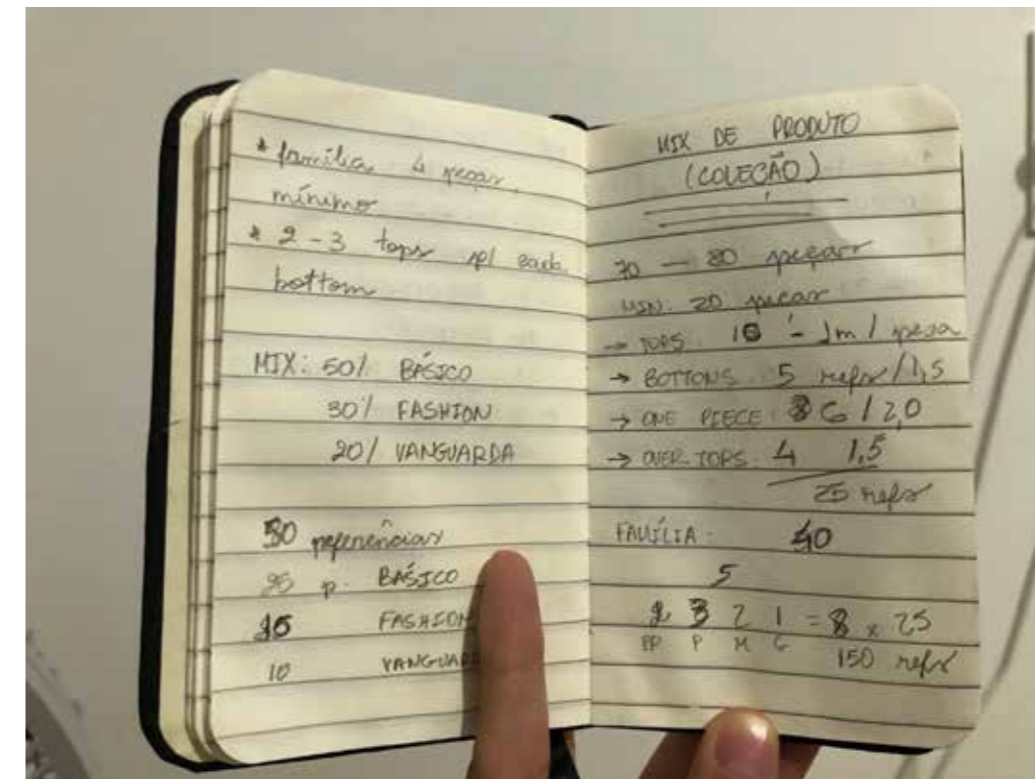 * família 4 peças.
mínimo
* 2 - 3 tops p/ cada
bottom
MIX: 50% BÁSICO
30% FASHION
20% VANGUARDA
50 referências
25 p. BÁSICO
15 FASHION
10 VANGUARD
MIX DE PRODUTO
(COLEÇÃO)
70 — 80 peças
MIN: 20 peças
→ TOPS: 10 - 1m / pessa
→ BOTTONS 5 refs / 1,5
→ ONE PIECE: 6 / 2,0
→ OVER TOPS. 4 1,5
25 refs
FAMÍLIA: 40
5
2 3 2 1 = 8 x 25
PP P M G 150 refs